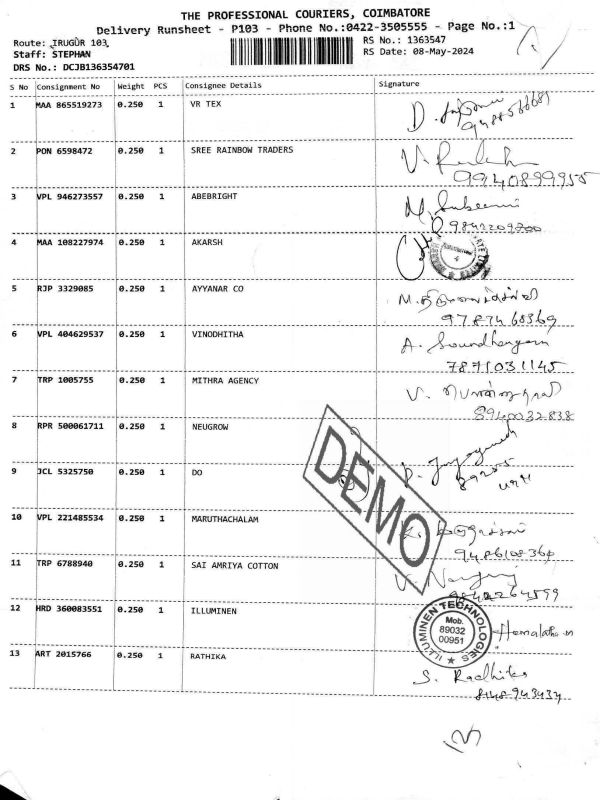 THE PROFESSIONAL COURIERS, COIMBATORE
Delivery Runsheet - P103 - Phone No.:0422-3505555 - Page No.:1
Route: IRUGUR 103 RS No.: 1363547
Staff: STEPHAN RS Date: 08-May-2024
DRS No.: DCJB136354701
S No Consignment No Weight PCS Consignee Details Signature
1 MAA 865519273 0.250 1 VR TEX
2 PON 6598472 0.250 1 SREE RAINBOW TRADERS
9940899955
3 VPL 946273557 0.250 1 ABEBRIGHT
9842209200
4 MAA 108227974 0.250 1 AKARSH
5 RJP 3329085 0.250 1 AYYANAR CO
9787468369
6 VPL 404629537 0.250 1 VINODHITHA
7871031145
7 TRP 1005755 0.250 1 MITHRA AGENCY
8940032838
8 RPR 500061711 0.250 1 NEUGROW
9 JCL 5325750 0.250 1 DO
DEMO
10 VPL 221485534 0.250 1 MARUTHACHALAM
9486108360
11 TRP 6788940 0.250 1 SAI AMRIYA COTTON
9842264599
12 HRD 360083551 0.250 1 ILLUMINEN
ILLUMINEN TECHNOLOGIES
Mob.
89032
00951
Hemalatha m
13 ART 2015766 0.250 1 RATHIKA
S. Radhika
8148943434
13